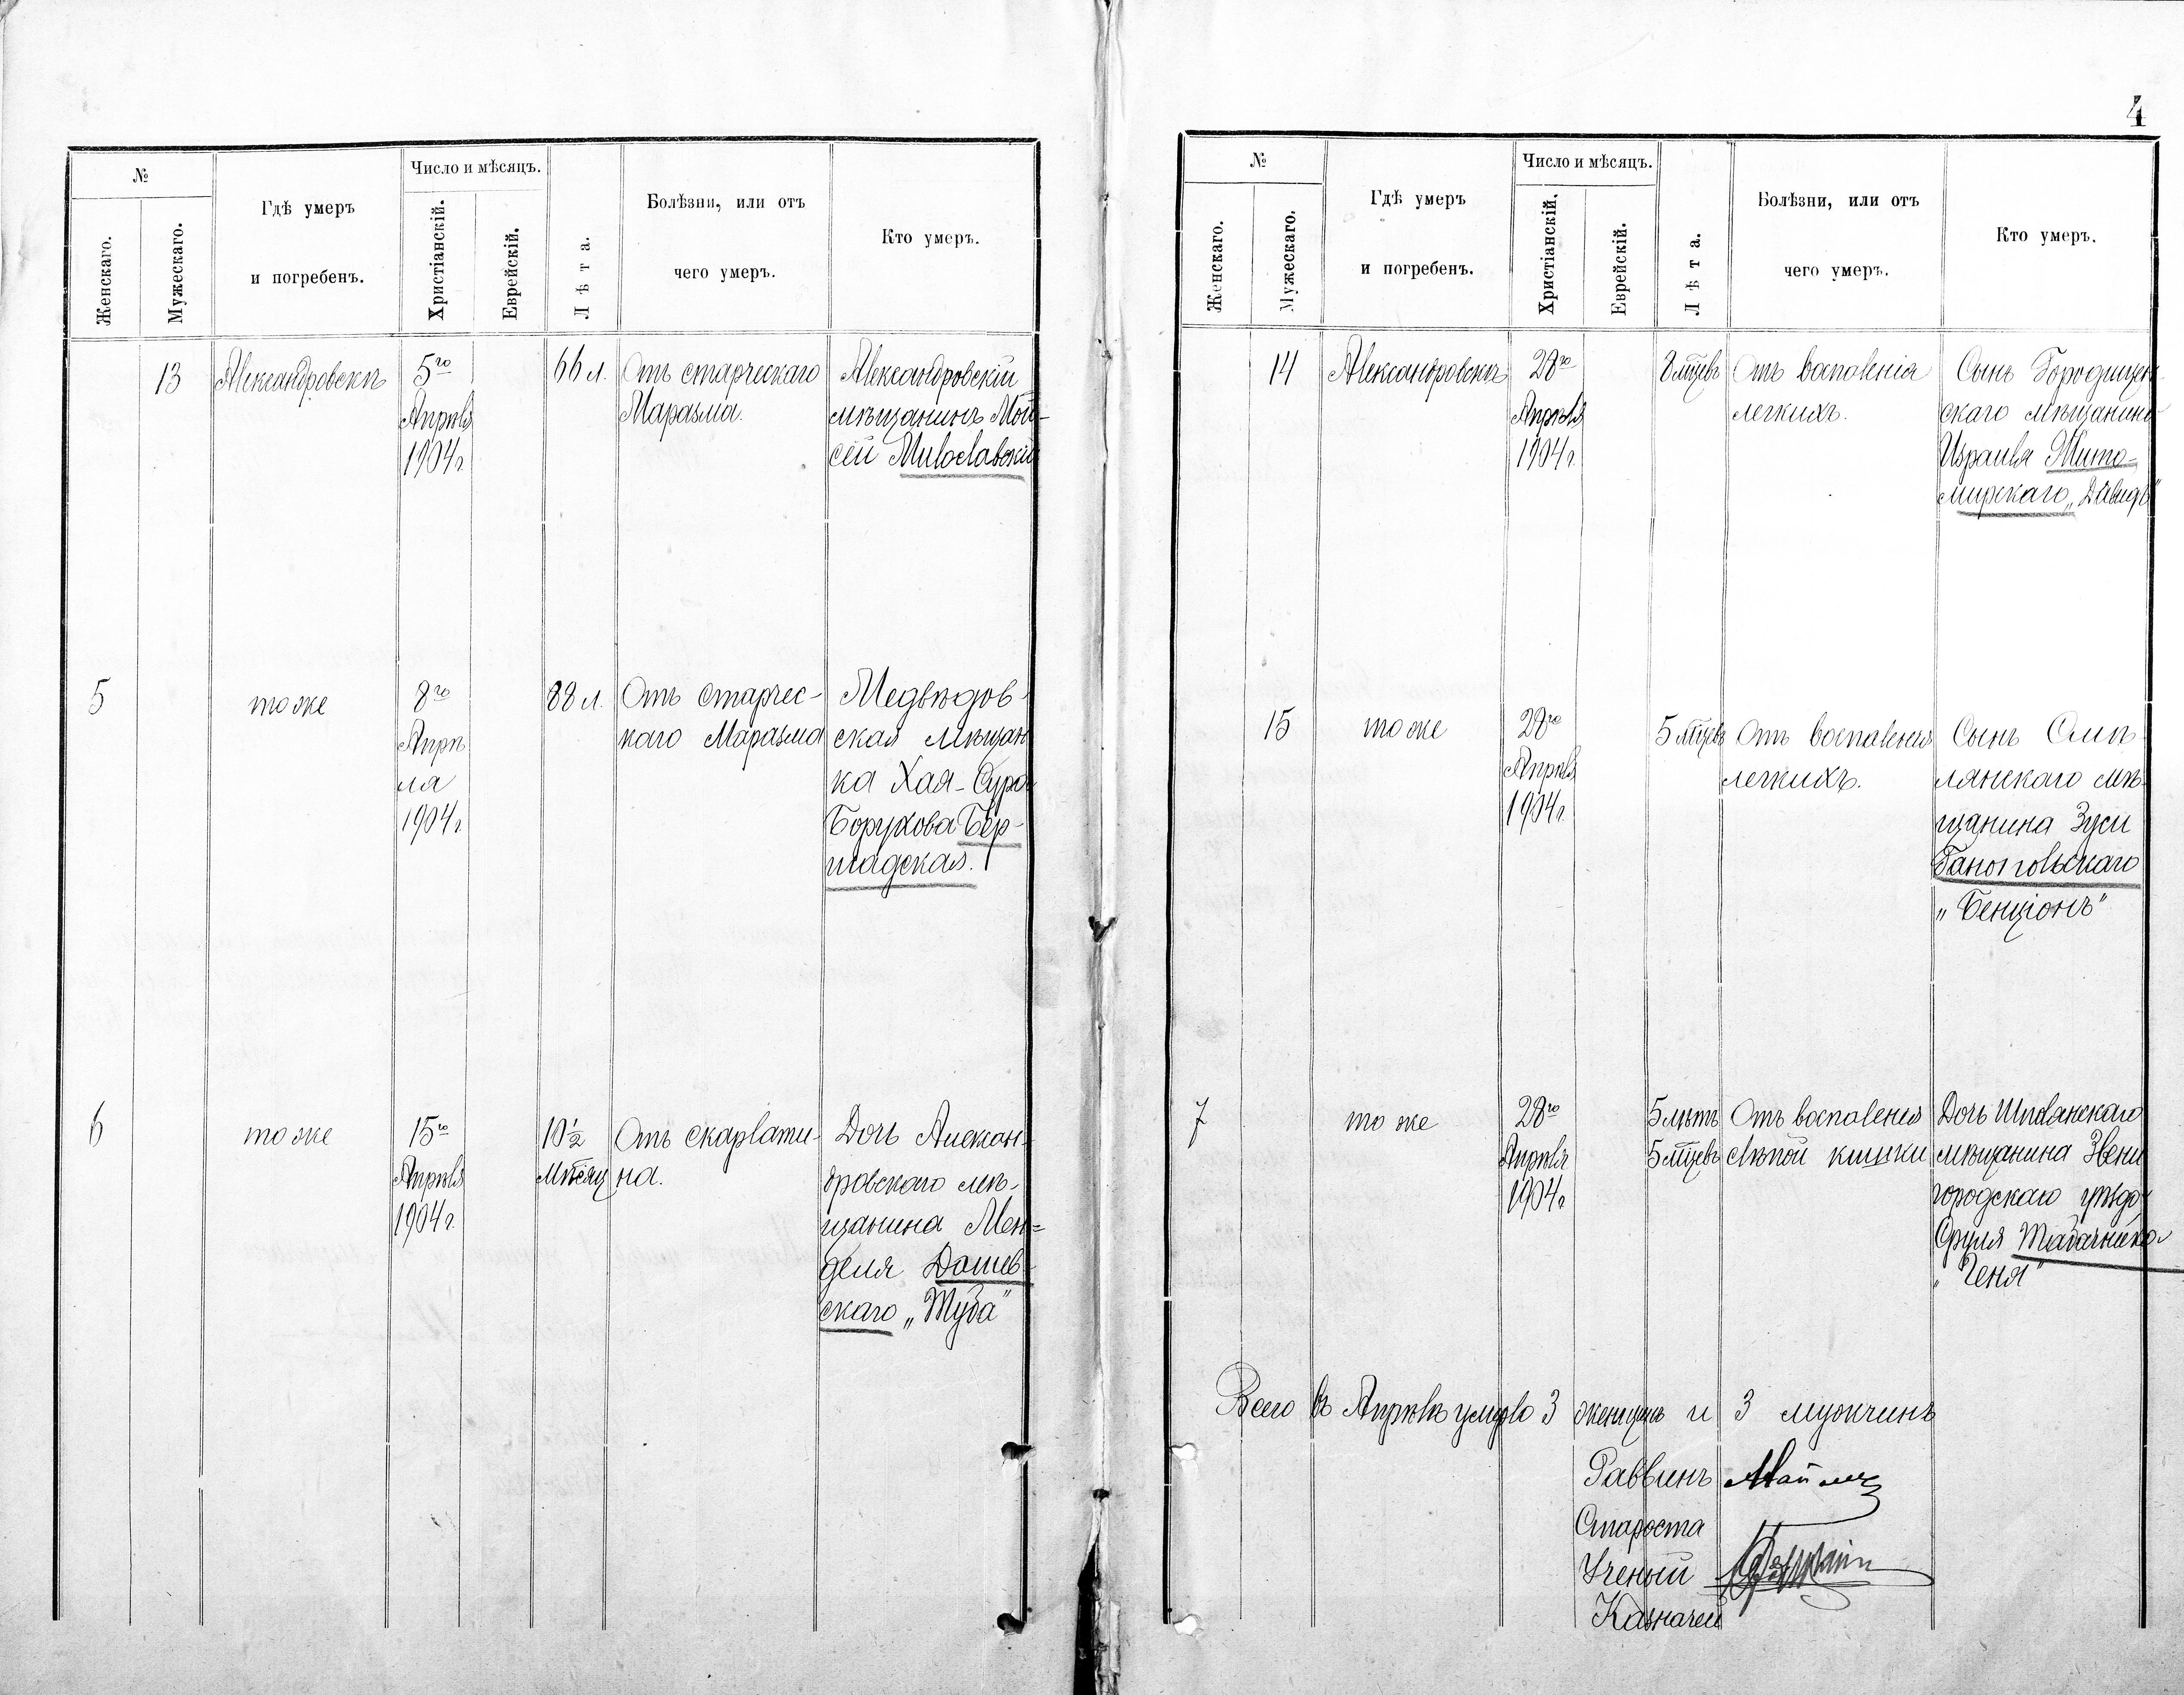 4
№
Женскаго.
Мужескаго.
Гдѣ умеръ
и погребенъ.
Число и мѣсяцъ.
Христіанскій.
Еврейскій.
Лѣта.
Болѣзни, или отъ
чего умеръ.
Кто умеръ.
13
Александровскъ
5го
Апрѣля
1904 г.
66 л.
Отъ старческаго
Маразма.
Александровскій
мѣщанинъ Мой-
сей Милославскій
5
тоже
8го
Апрѣ
ля
1904 г.
88 л.
Отъ старчес-
каго Маразма
Медвѣдов-
ская мѣщан
ка Хая-Сура
Борухова Бер-
шадская.
6
тоже
15го
Апрѣля
1904 г.
10½
Мѣсяц
Отъ скарлати-
на.
Дочь Алексан-
дровскаго мѣ-
щанина Мен=
деля Дашев-
скаго „Туба"
№
Женскаго.
Мужескаго.
Гдѣ умеръ
и погребенъ.
Число и мѣсяцъ.
Христіанскій.
Еврейскій.
Лѣта.
Болѣзни, или отъ
чего умеръ.
Кто умеръ.
14
Александровскъ
28го
Апрѣля
1904 г.
8 мѣцевъ
Отъ воспаленія
легкихъ.
Сынъ Городищен
скаго мѣщанина
Израиля Жито-
мирскаго „Давидъ"
15
тоже
28го
Апрѣля
1904 г.
5 мѣцевъ
Отъ воспаления
легкихъ.
Сынъ Смѣ
лянскаго мѣ-
щанина Зуси
„Бенціонъ"
7
то же
28го
Апрѣля
1904 г.
5 лѣтъ
5 мѣцевъ
Отъ воспаления
слѣпой кишки
Дочь Шполянскаго
мѣщанина Звени
городскаго уѣзда
Сруля Табачника
„Геня"
Всего въ Апрѣлѣ умерло 3 женщинъ и 3 мужчинъ
Раввинъ
Староста
Ученый
Казначей